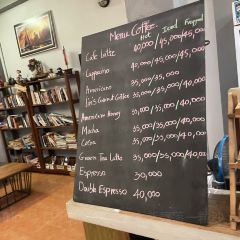 Menu Coffee
Hot Iced Frappe
Cafe Latte 40,000/45,000/45,000
Cappucino 40,000/45,000/45,000
Americano 35,000/35,000
Coffee 35,000/35,000/40,000
American Honey 35,000/40,000/40,000
Macha 35,000/35,000/40,000
Cocoa 35,000/35,000/40,000
Green Tea Latte 35,000/35,000/40,000
Espresso 30,000
Double Espresso 40,000